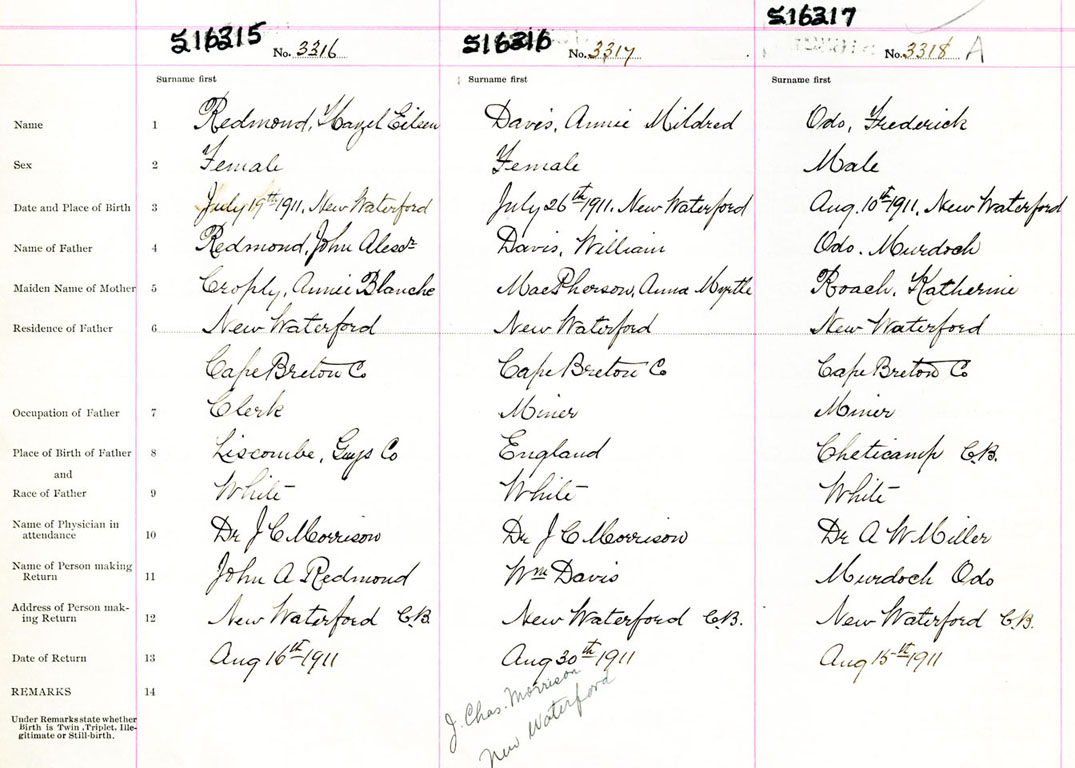 S16315 S16316 S16317
No. 3316 No. 3317 No. 3318 A
Surname first Surname first Surname first
Name 1 Redmond, Hazel Eileen Davis, Annie Mildred Odo, Frederick
Sex 2 Female Female Male
Date and Place of Birth 3 July 19th 1911, New Waterford July 26th 1911, New Waterford Aug. 10th 1911, New Waterford
Name of Father 4 Redmond, John Alexdr Davis, William Odo, Murdoch
Maiden Name of Mother 5 Croply, Annie Blanche MacPherson, Anna Myrtle Roach, Katherine
Residence of Father 6 New Waterford New Waterford New Waterford
Cape Breton Co Cape Breton Co Cape Breton Co
Occupation of Father 7 Clerk Miner Miner
Place of Birth of Father 8 Liscombe, Guys Co England Cheticamp C.B.
and
Race of Father 9 White White White
Name of Physician in
attendance 10 Dr J C Morrison Dr J C Morrison Dr A W Miller
Name of Person making
Return 11 John A Redmond Wm Davis Murdoch Odo
Address of Person mak-
ing Return 12 New Waterford C.B. New Waterford C.B. New Waterford C.B.
Date of Return 13 Aug 16th 1911 Aug 30th 1911 Aug 15th 1911
REMARKS 14
J. Chas. Morrison
New Waterford
Under Remarks state whether
Birth is Twin, Triplet, Ille-
gitimate or Still-birth.